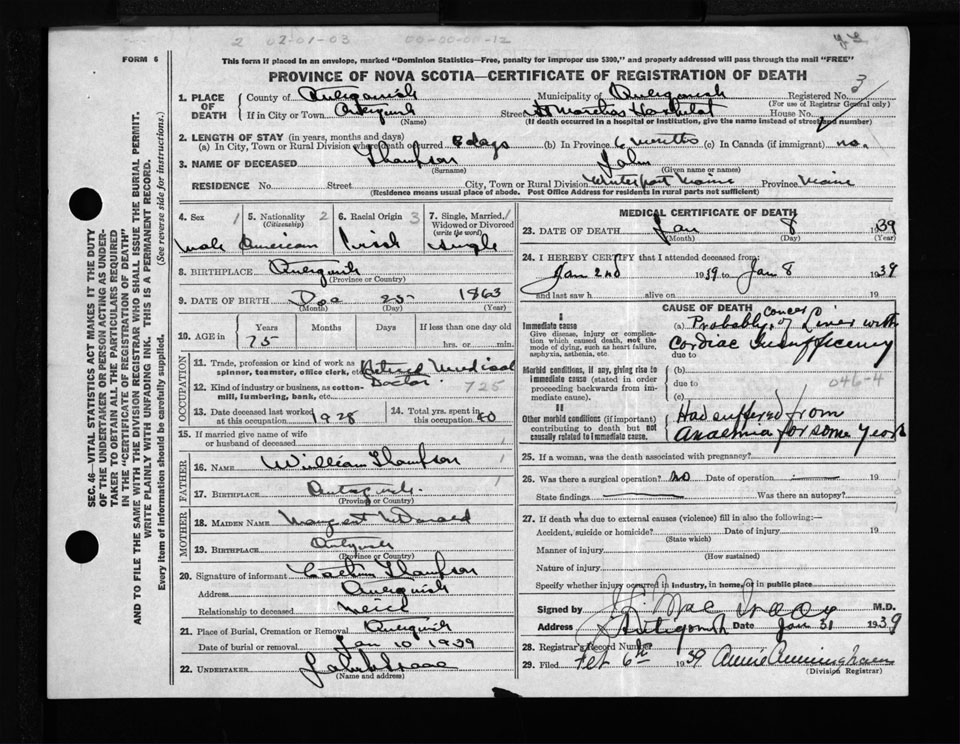 2 02-01-03 00-00-00-12
FORM 6
This form if placed in an envelope, marked "Dominion Statistics—Free, penalty for improper use $300," and properly addressed will pass through the mail "FREE"
PROVINCE OF NOVA SCOTIA—CERTIFICATE OF REGISTRATION OF DEATH
SEC. 46—VITAL STATISTICS ACT MAKES IT THE DUTY
OF THE UNDERTAKER OR PERSON ACTING AS UNDER-
TAKER TO OBTAIN ALL THE PARTICULARS REQUIRED
IN THE "CERTIFICATE OF REGISTRATION OF DEATH"
AND TO FILE THE SAME WITH THE DIVISION REGISTRAR WHO SHALL ISSUE THE BURIAL PERMIT.
WRITE PLAINLY WITH UNFADING INK. THIS IS A PERMANENT RECORD.
Every item of information should be carefully supplied. (See reverse side for instructions.)
1. PLACE OF DEATH County of Antigonish Municipality of Antigonish Registered No. 3
(For use of Registrar General only)
If in City or Town Antigonish Street St Marthas Hospital House No.
(Name) (If death occurred in a hospital or institution, give the name instead of street and number)
2. LENGTH OF STAY (in years, months and days)
(a) In City, Town or Rural Division where death occurred days (b) In Province 6 months (c) In Canada (if immigrant) no.
3. NAME OF DECEASED Thompson John
(Surname) (Given name or names)
RESIDENCE No. Street City, Town or Rural Division Winterport Maine Province Maine
(Residence means usual place of abode. Post Office Address for residents in rural parts not sufficient)
4. Sex 1 5. Nationality 2 (Citizenship) 6. Racial Origin 3 7. Single, Married, 1 Widowed or Divorced (write the word)
male American Irish Single
8. BIRTHPLACE Antigonish
(Province or Country)
9. DATE OF BIRTH Dec 25 1863
(Month) (Day) (Year)
10. AGE in Years Months Days If less than one day old
75 hrs. or min.
OCCUPATION
11. Trade, profession or kind of work as spinner, teamster, office clerk, etc. Retired Medical
Doctor 725
12. Kind of industry or business, as cotton-mill, lumbering, bank, etc.
13. Date deceased last worked at this occupation 1928 14. Total yrs. spent in this occupation
15. If married give name of wife or husband of deceased
FATHER
16. NAME William Thompson 1
17. BIRTHPLACE Antigonish. 1
(Province or Country)
MOTHER
18. MAIDEN NAME Margaret McDonald
19. BIRTHPLACE Antigonish
(Province or Country)
20. Signature of informant Thompson
Address Antigonish
Relationship to deceased Neice
21. Place of Burial, Cremation or Removal Antigonish
Date of burial or removal Jan 10 1939
22. UNDERTAKER
(Name and address)
MEDICAL CERTIFICATE OF DEATH
23. DATE OF DEATH Jan 8 1939
(Month) (Day) (Year)
24. I HEREBY CERTIFY that I attended deceased from:
Jan 2nd 1939 to Jan 8 1939
and last saw h alive on 19
CAUSE OF DEATH
I
Immediate cause
Give disease, injury or complication which caused death, not the mode of dying, such as heart failure, asphyxia, asthenia, etc.
(a) Probably Cancer of Liver with
Cardiac Insufficiency
due to
Morbid conditions, if any, giving rise to immediate cause (stated in order proceeding backwards from immediate cause).
(b)
due to 046-4
(c)
II
Other morbid conditions (if important) contributing to death but not causally related to immediate cause.
Had suffered from
Anaemia for some Years
25. If a woman, was the death associated with pregnancy?
26. Was there a surgical operation? no Date of operation 19
State findings Was there an autopsy?
27. If death was due to external causes (violence) fill in also the following:—
Accident, suicide or homicide? Date of injury 19
(State which)
Manner of injury
(How sustained)
Nature of injury
Specify whether injury occurred in industry, in home, or in public place
Signed by M.D.
Address Antigonish Date Jan 31 1939
28. Registrar's Record Number
29. Filed Feb 6th 1939 Annie Cunningham
(Division Registrar)